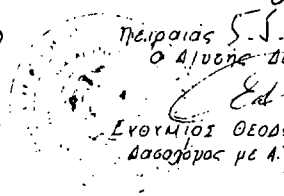 Πειραιάς 5.5.
Ο Δ/υσης Δ
ΕΥΘΥΜΙΟΣ ΘΕΟΔ
Δασολόγος με Α.